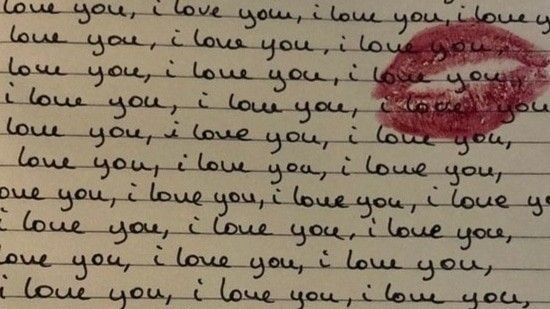 love you, i love you, i love you, i love y
love you, i love you, i love you,
love you, i love you, i love you,
i love you, i love you, i love you
love you, i love you, i love you,
love you, i love you, i love you,
ove you, i love you, i love you, i love y
i love you, i love you, i love you,
love you, i love you, i love you,
i love you, i love you, i love you,